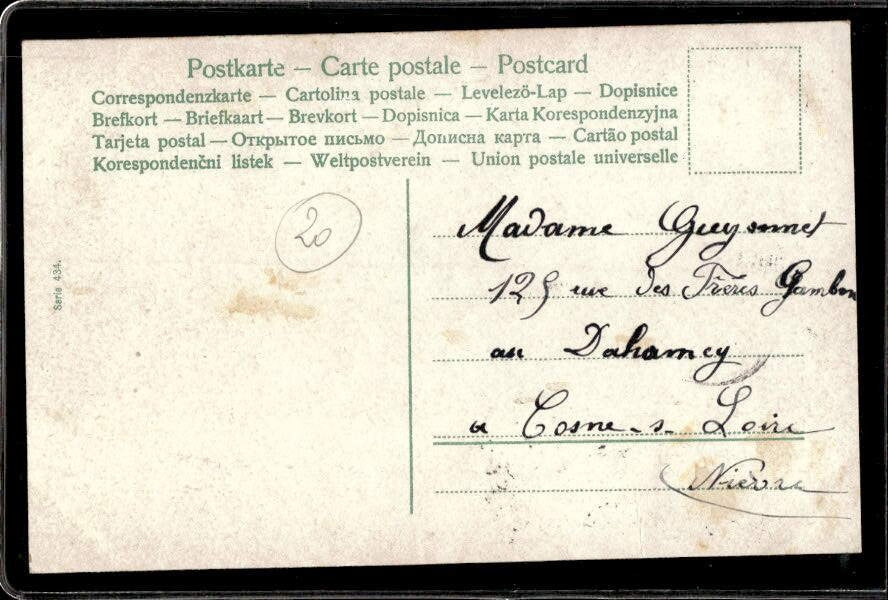 Postkarte – Carte postale – Postcard
Correspondenzkarte — Cartolina postale — Levelezö-Lap — Dopisnice
Brefkort — Briefkaart — Brevkort — Dopisnica — Karta Korespondenzyjna
Tarjeta postal — Открытое письмо — Дописна карта — Cartão postal
Korespondenčni listek — Weltpostverein — Union postale universelle
20
Serie 434.
Madame Guyonnet
125 rue des Frères Gambon
au Dahomey
a Cosne-s-Loire
Nièvre